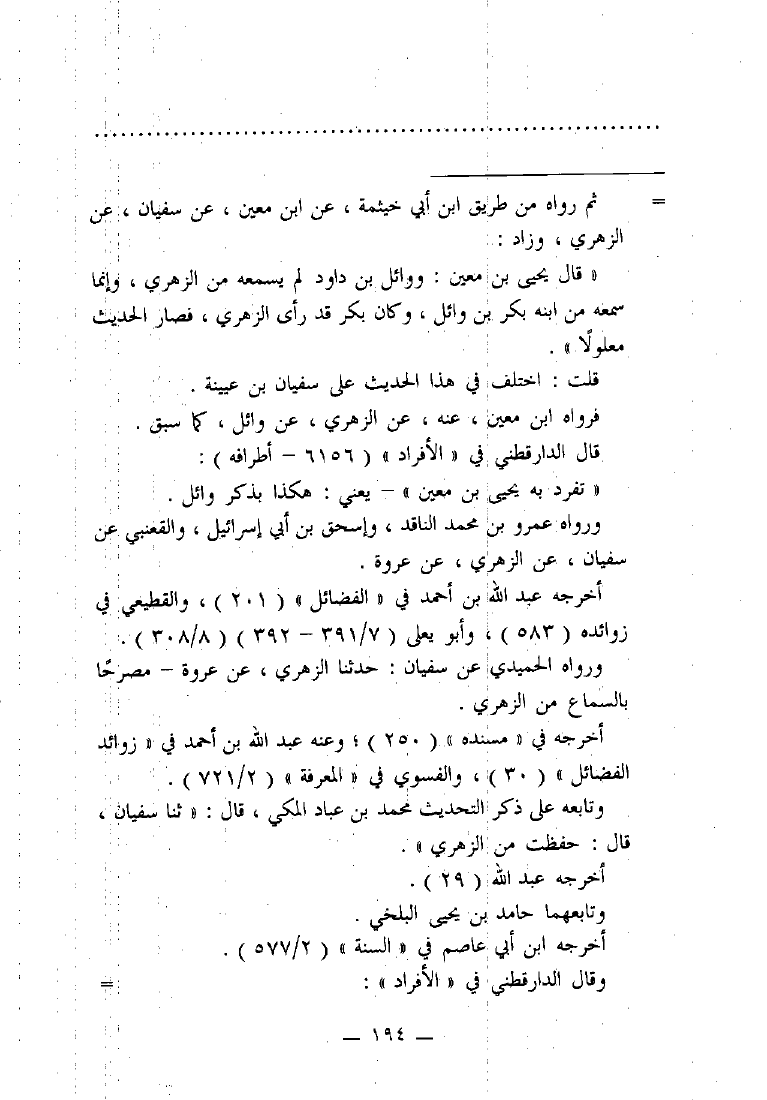 = ثم رواه من طريق ابن أبي خيثمة ، عن ابن معين ، عن سفيان ، عن
الزهري ، وزاد :
« قال يحيى بن معين : ووائل بن داود لم يسمعه من الزهري ، وإنما
سمعه من ابنه بكر بن وائل ، وكان بكر قد رأى الزهري ، فصار الحديث
معلولًا » .
قلت : اختلف في هذا الحديث على سفيان بن عيينة .
فرواه ابن معين ، عنه ، عن الزهري ، عن وائل ، كما سبق .
قال الدارقطني في « الأفراد » ( ٦١٥٦ – أطرافه ) :
« تفرد به يحيى بن معين » – يعني : هكذا بذكر وائل .
ورواه عمرو بن محمد الناقد ، وإسحق بن أبي إسرائيل ، والقعنبي عن
سفيان ، عن الزهري ، عن عروة .
أخرجه عبد الله بن أحمد في « الفضائل » ( ٢٠١ ) ، والقطيعي في
زوائده ( ٥٨٣ ) ، وأبو يعلى ( ٣٩١/٧ – ٣٩٢ ) ( ٣٠٨/٨ ) .
ورواه الحميدي عن سفيان : حدثنا الزهري ، عن عروة – مصرحًا
بالسماع من الزهري .
أخرجه في « مسنده » ( ٢٥٠ ) ؛ وعنه عبد الله بن أحمد في « زوائد
الفضائل » ( ٣٠ ) ، والفسوي في « المعرفة » ( ٧٢١/٢ ) .
وتابعه على ذكر التحديث محمد بن عباد المكي ، قال : « ثنا سفيان ،
قال : حفظت من الزهري » .
أخرجه عبد الله ( ٢٩ ) .
وتابعهما حامد بن يحيى البلخي .
أخرجه ابن أبي عاصم في « السنة » ( ٥٧٧/٢ ) .
وقال الدارقطني في « الأفراد » : =
— ١٩٤ —